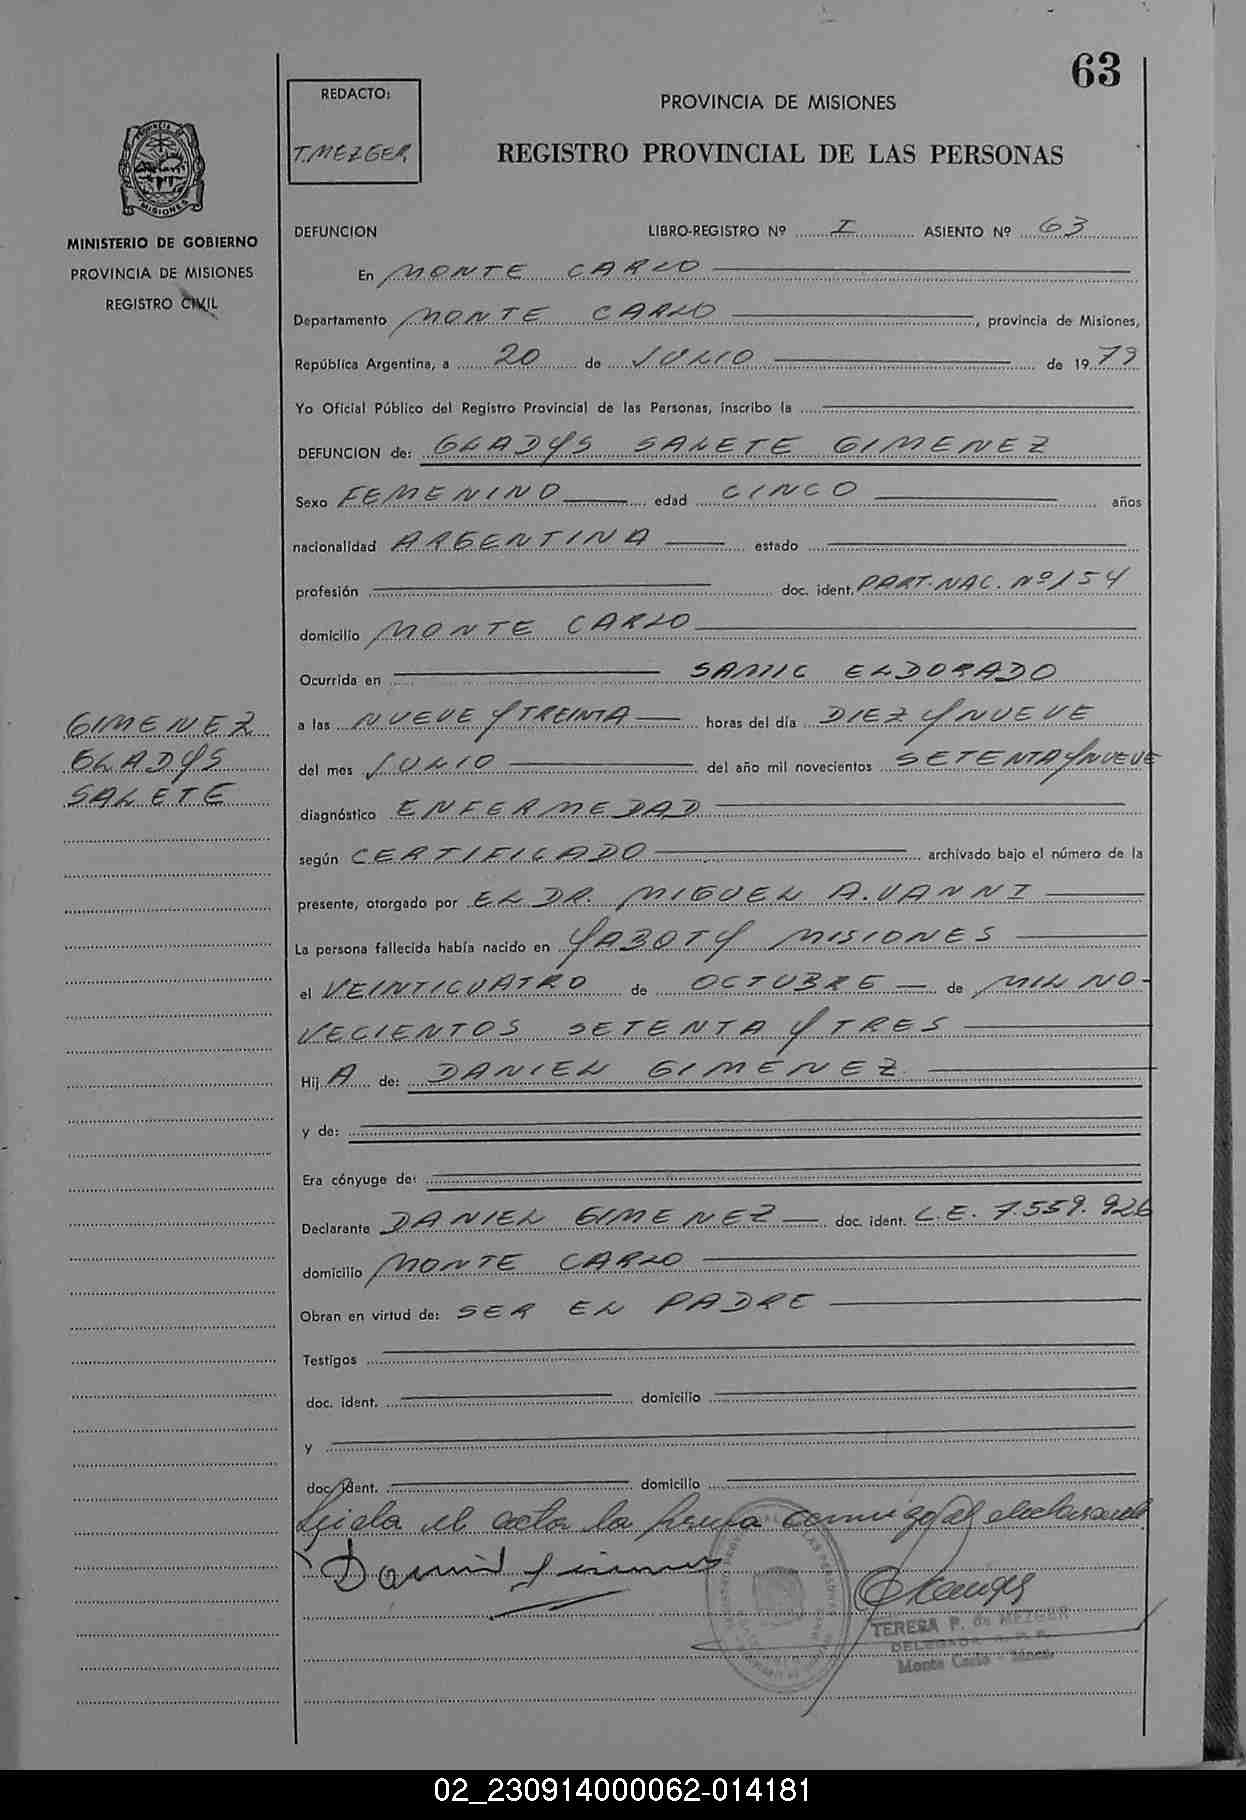 63
REDACTO:
T. MEZGER
PROVINCIA DE MISIONES
REGISTRO PROVINCIAL DE LAS PERSONAS
MINISTERIO DE GOBIERNO
PROVINCIA DE MISIONES
REGISTRO CIVIL
DEFUNCION LIBRO-REGISTRO Nº I ASIENTO Nº 63
En MONTE CARLO
Departamento MONTE CARLO, provincia de Misiones,
República Argentina, a 20 de JULIO de 1979
Yo Oficial Público del Registro Provincial de las Personas, inscribo la
DEFUNCION de: GLADYS SALETE GIMENEZ
Sexo FEMENINO edad CINCO años
nacionalidad ARGENTINA estado
profesión doc. ident. PART. NAC. Nº 154
domicilio MONTE CARLO
Ocurrida en SAMIC ELDORADO
a las NUEVE Y TREINTA horas del día DIEZ Y NUEVE
del mes JULIO del año mil novecientos SETENTA Y NUEVE
diagnóstico ENFERMEDAD
según CERTIFICADO archivado bajo el número de la
presente, otorgado por EL DR. MIGUEL A. VANNI
La persona fallecida había nacido en YABOTY MISIONES
el VEINTICUATRO de OCTUBRE de MIL NO-
VECIENTOS SETENTA Y TRES
Hij A de: DANIEL GIMENEZ
y de:
Era cónyuge de:
Declarante DANIEL GIMENEZ doc. ident. L.E. 7.559.926
domicilio MONTE CARLO
Obran en virtud de: SER EL PADRE
Testigos
doc. ident. domicilio
y
doc. ident. domicilio
Leída el acta la firma conmigo el declarante
Daniel Gimenez
TERESA P. de MEZGER
DELEGADA R. P. P.
Monte Carlo - Mnes.
GIMENEZ
GLADYS
SALETE
02_230914000062-014181